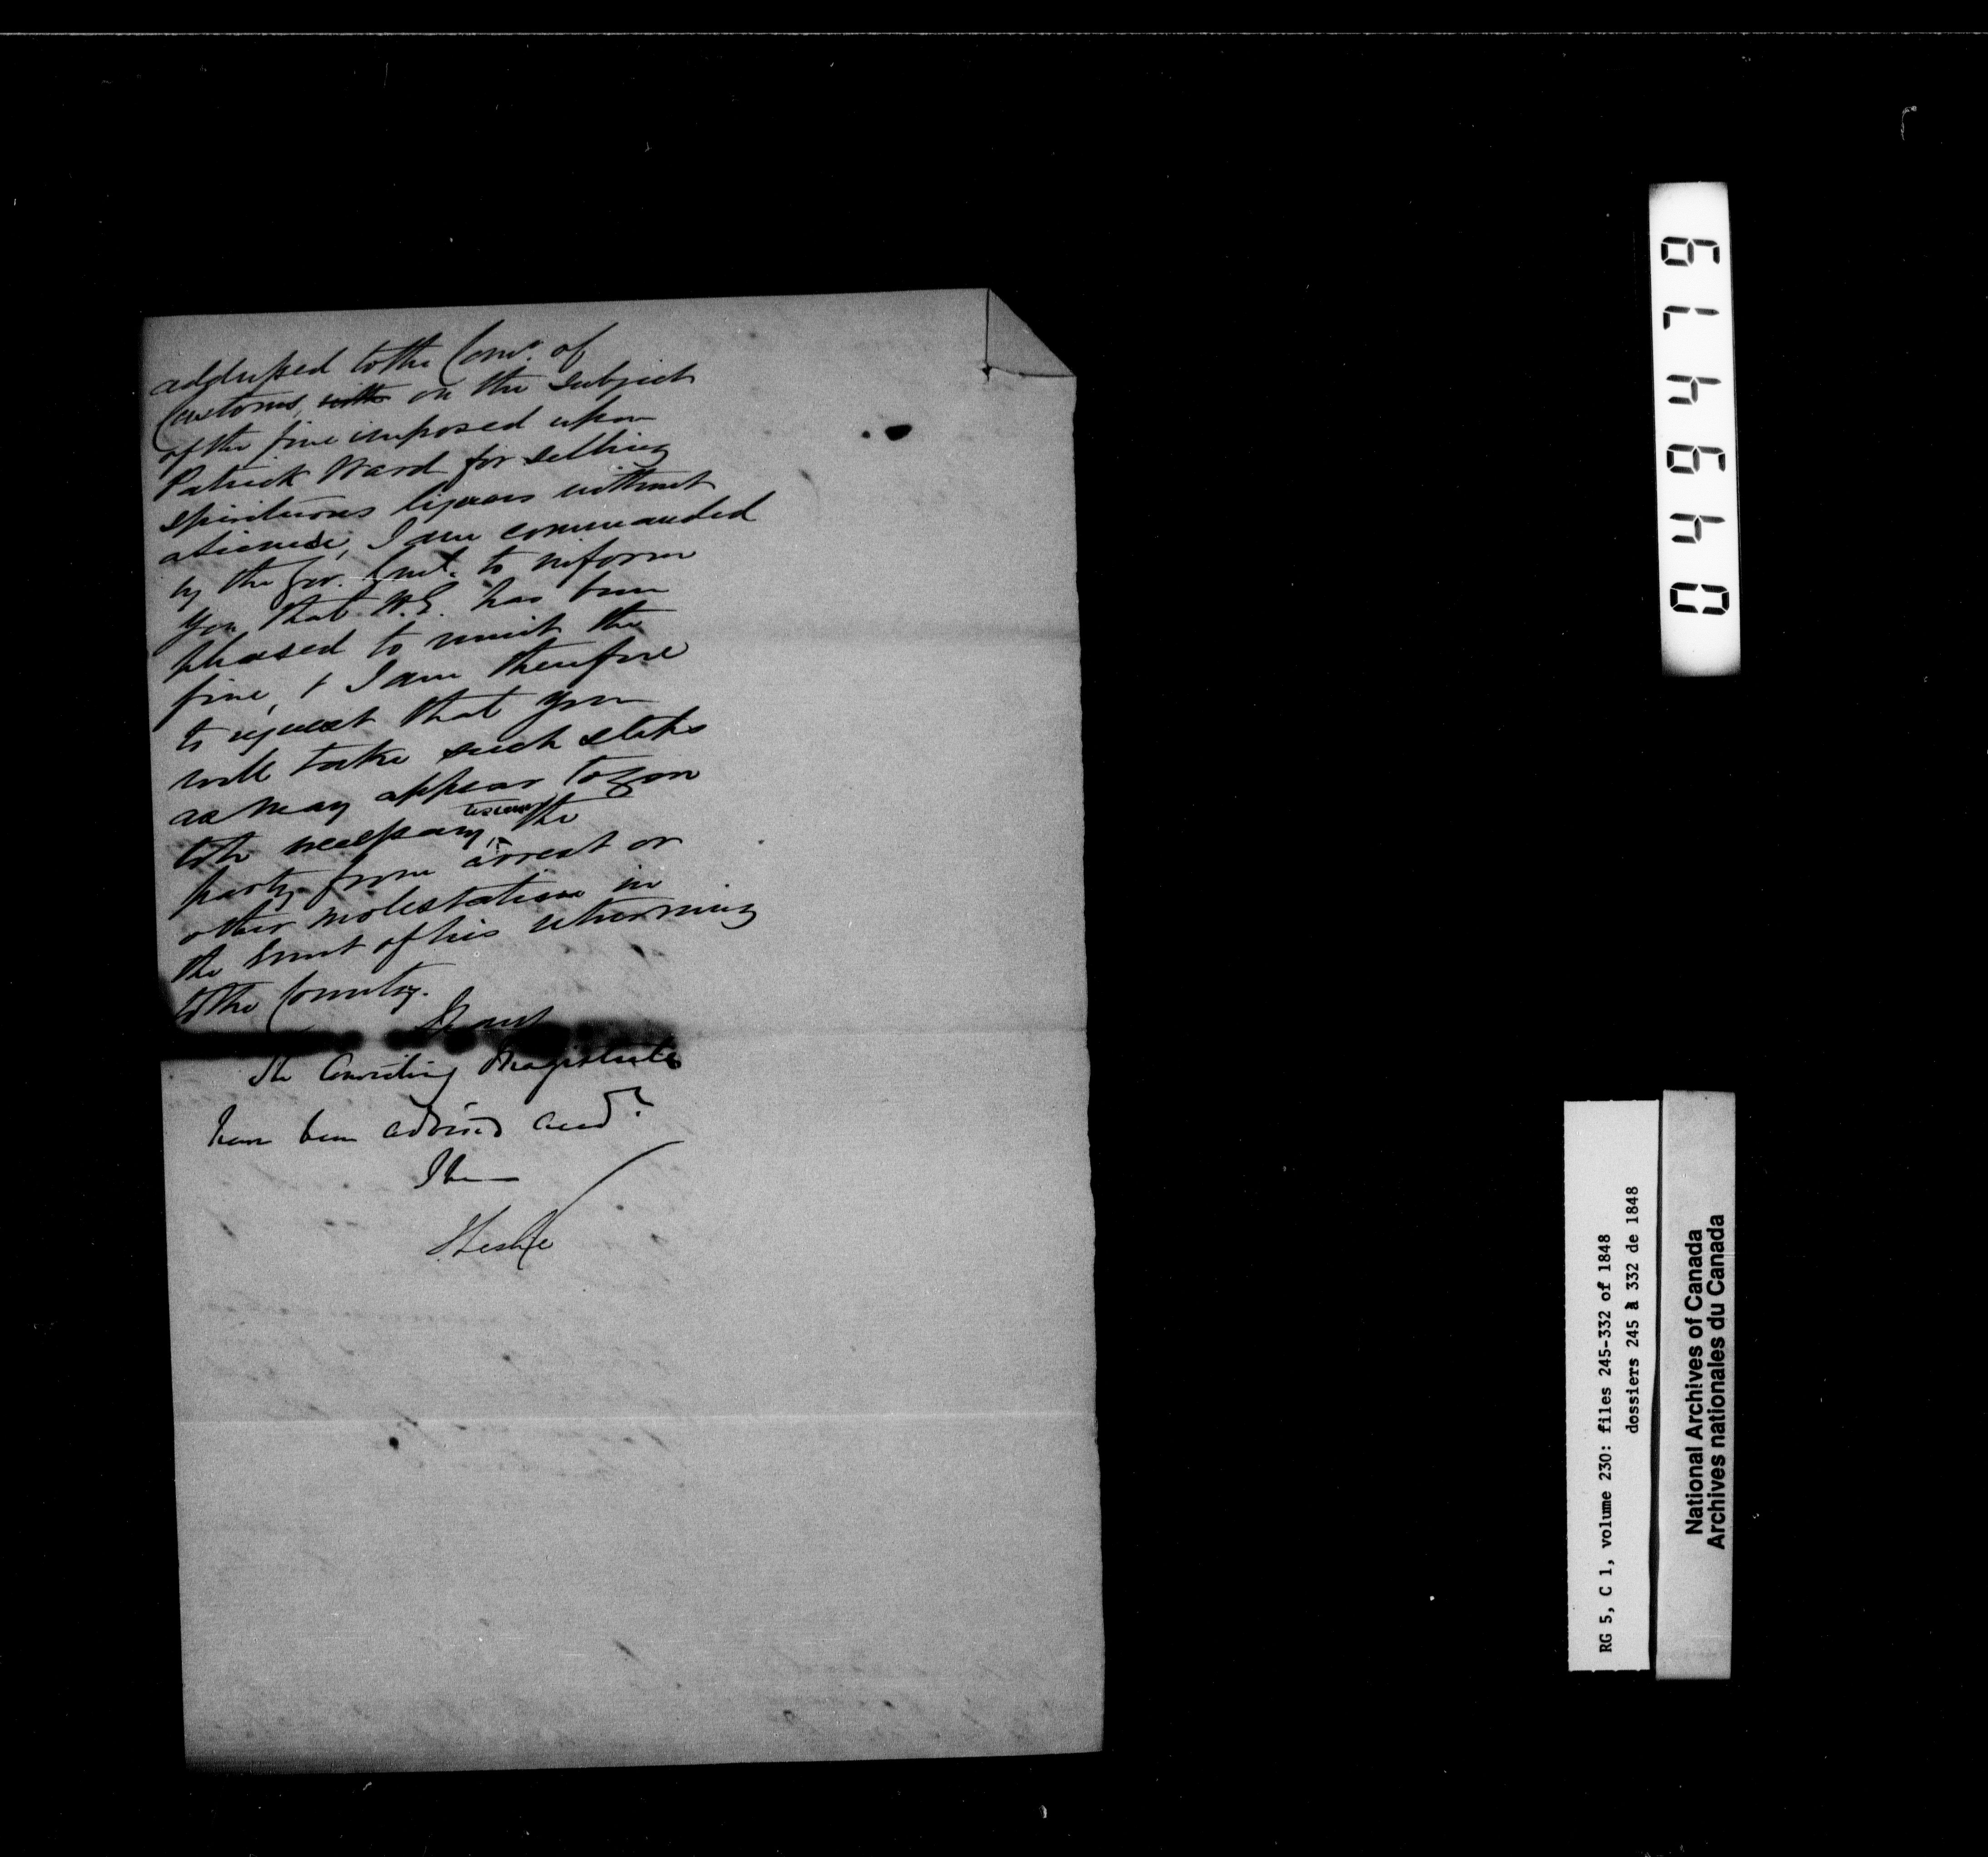 addressed to the Comr. of
Customs, with on the subject
of the fine imposed upon
Patrick Ward for selling
spirituous liquors without
a licence, I am commanded
by the Gov. Genl. to inform
you that H.E. has been
pleased to remit the
fine, & I am therefore
to request that you
will take such steps
as may appear to you
to be necessary, the
party from arrest or
other molestation in
the event of his returning
to the Country.
The Convicting Magistrates
have been advised accd.
I have
J Leslie
044619
RG 5, C 1, volume 230: files 245-332 of 1848
dossiers 245 à 332 de 1848
National Archives of Canada
Archives nationales du Canada